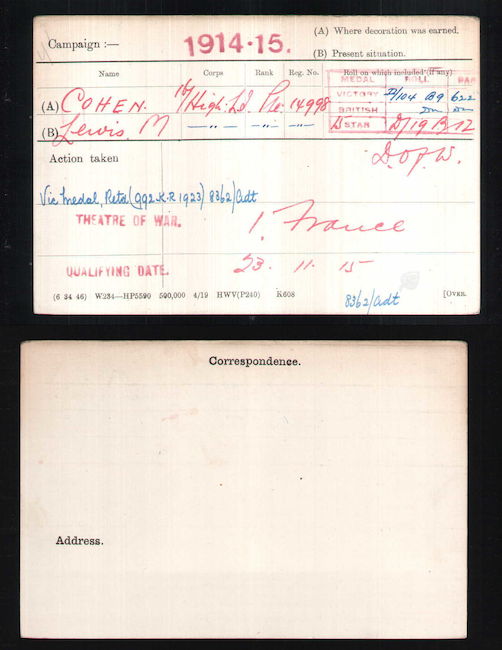 Campaign :— 1914-15. (A) Where decoration was earned.
(B) Present situation.
Name Corps Rank Reg. No. Roll on which included (if any)
MEDAL ROLL PAGE
(A) COHEN. High: L.I. Pte. 14998 VICTORY D/104 B9 622
(B) Lewis. M —"— —"— —"— BRITISH Do Do
STAR D/19 B 12
Action taken D. of W.
Vic medal, Retd (992 K.R 1923) 8362/Adt
THEATRE OF WAR. 1. France
QUALIFYING DATE. 23. 11. 15
8362/adt
(6 34 46) W234—HP5590 500,000 4/19 HWV(P240) K608 [OVER.
Correspondence.
Address.